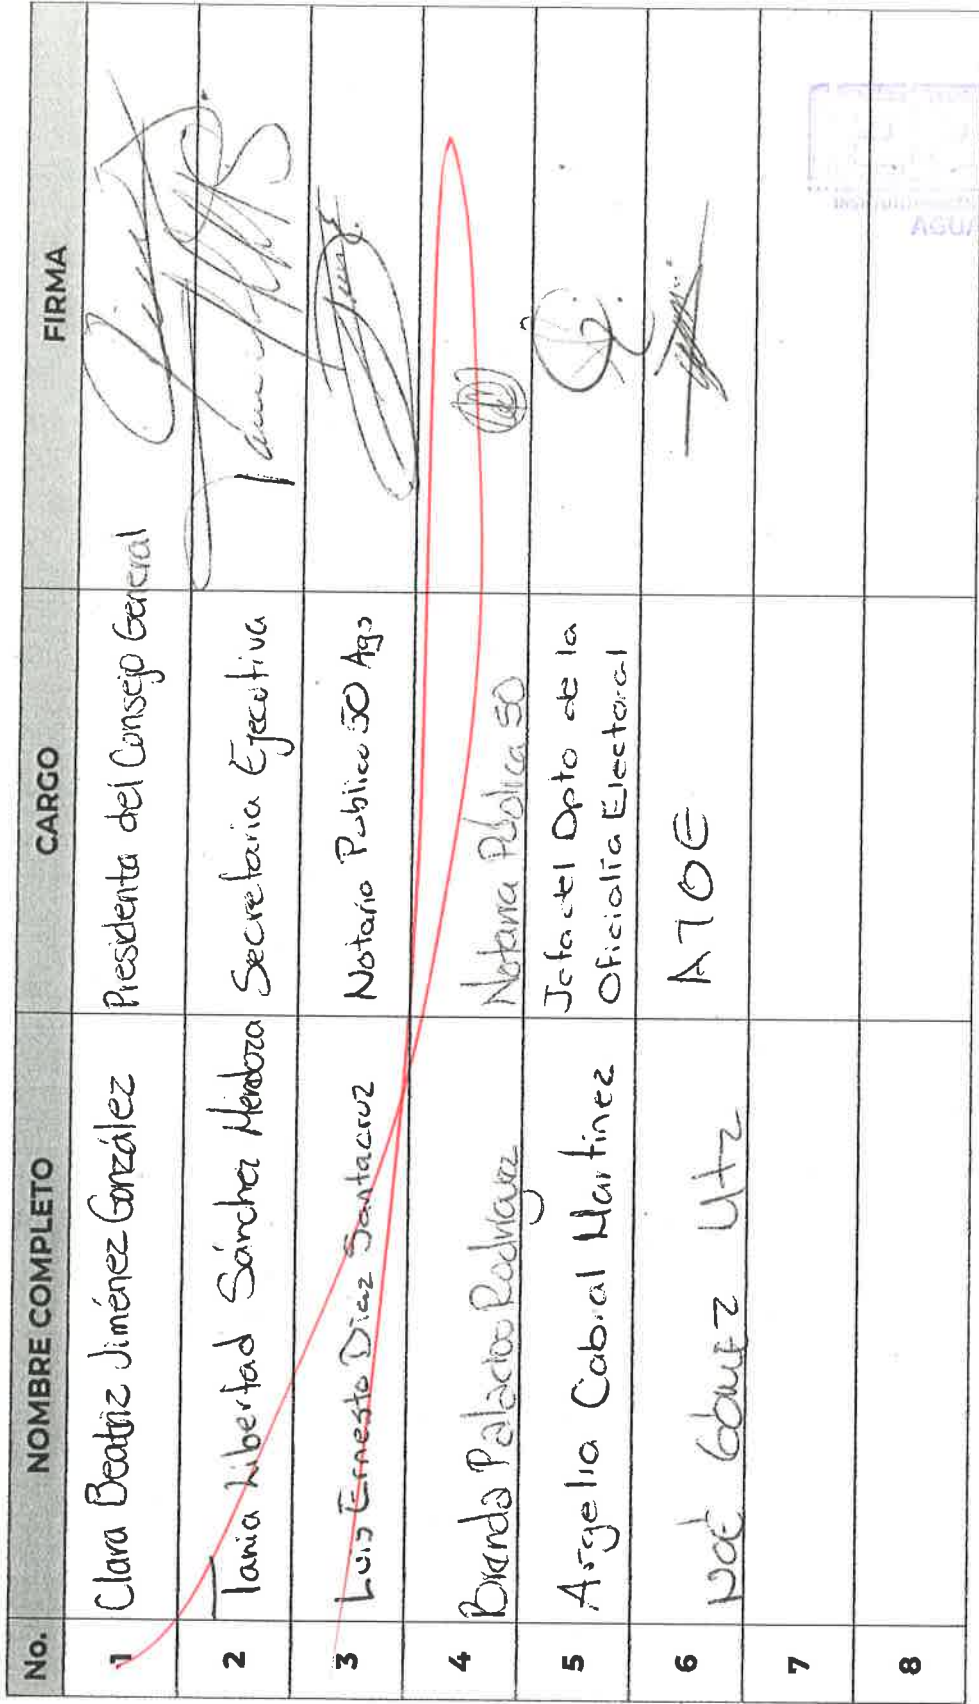 No. NOMBRE COMPLETO CARGO FIRMA
1 Clara Beatriz Jiménez González Presidenta del Consejo General
2 Tania Libertad Sánchez Mendoza Secretaria Ejecutiva
3 Luis Ernesto Díaz Santacruz Notario Público 50 Ags
4 Brenda Palacios Rodríguez Notaria Pública 50
5 Argelia Cabral Martínez Jefa del Dpto de la
Oficialía Electoral
6 Noé Gómez
7
8
AGUA